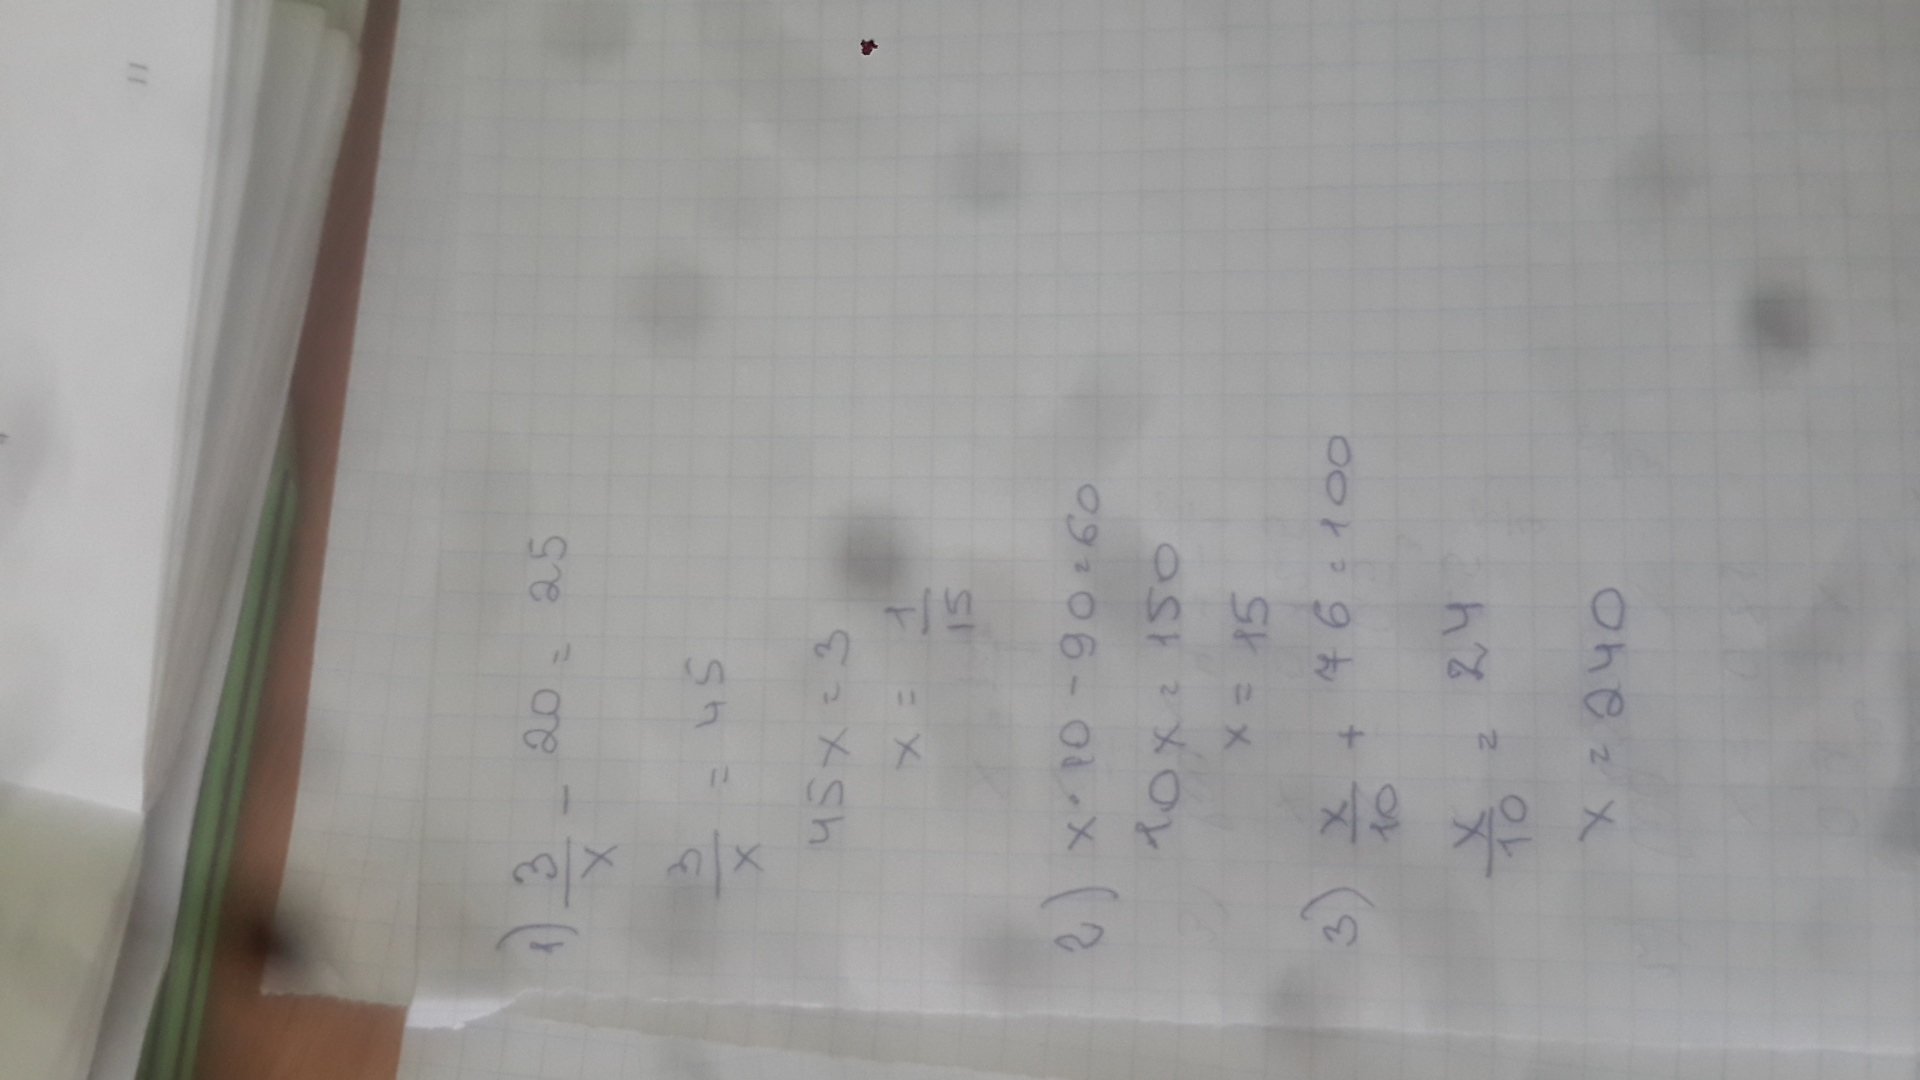 1) 3/x - 20 = 25
3/x = 45
45x = 3
x = 1/15
2) x · 10 - 90 = 60
10x = 150
x = 15
3) x/10 + 76 = 100
x/10 = 24
x = 240